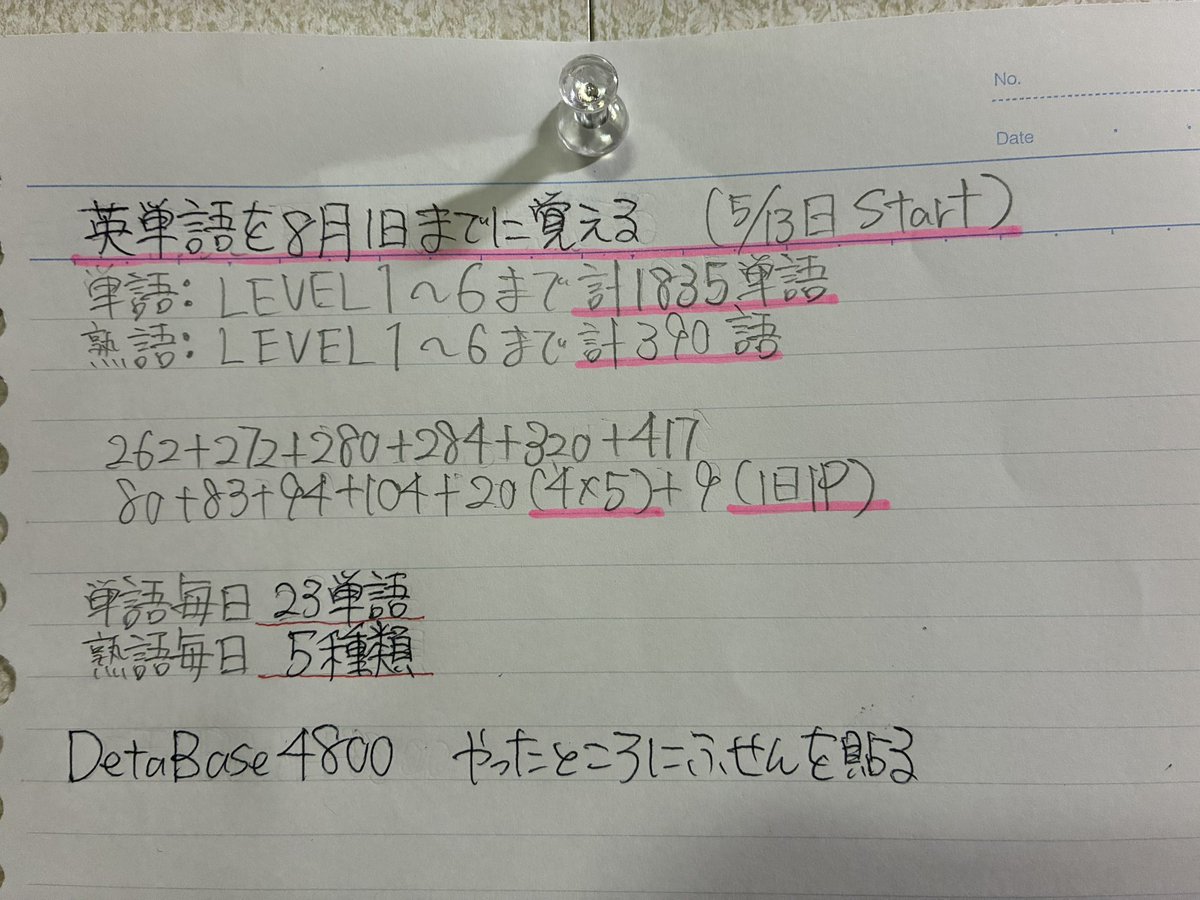 No.
Date
英単語を8月1日までに覚える (5/13日 Start)
単語: LEVEL1~6まで計1835単語
熟語: LEVEL1~6まで計390語
262+272+280+284+320+417
80+83+94+104+20(4×5)+9(1日1P)
単語毎日 23単語
熟語毎日 5種類
DetaBase4800 やったところにふせんを貼る